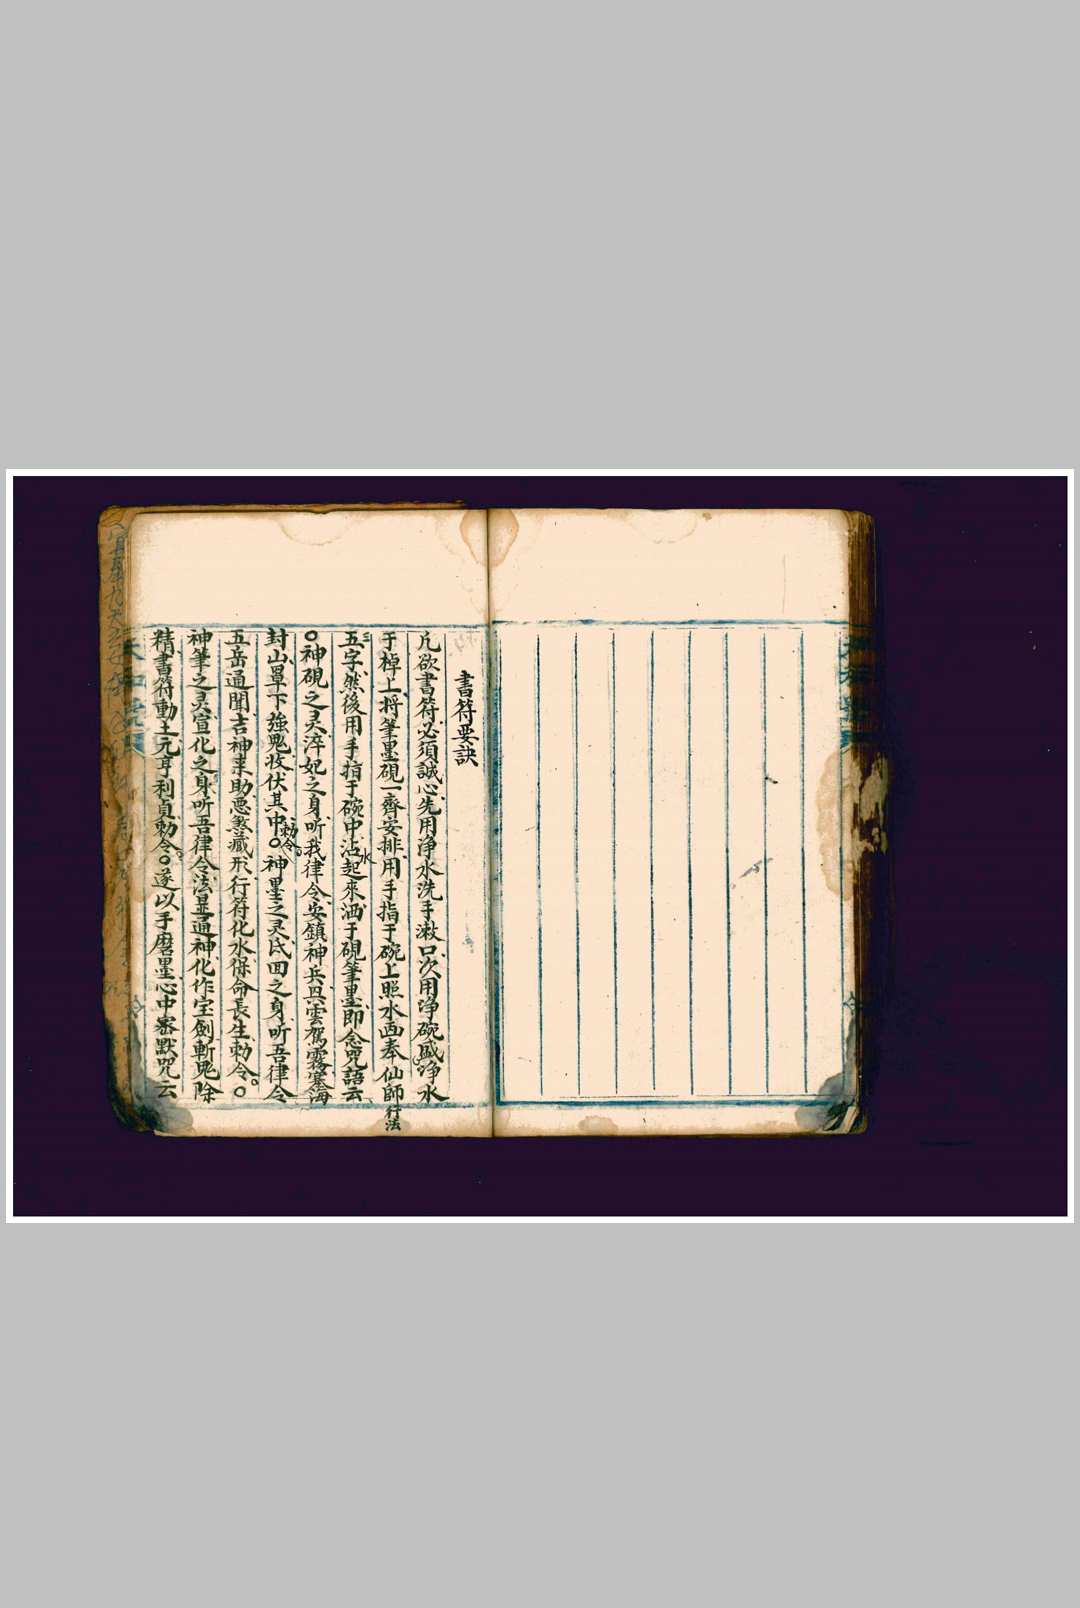 書符要訣
凢欲書符必須誠心先用净水洗手漱口次用净碗盛净水
于棹上将筆墨硯一齊安排用手指于碗上照水画奉仙師行法
五字三然後用手指于碗中沾水起來洒于硯筆墨即念咒語云
○神硯之灵淬妃之身听我律令安鎮神兵興雲駕霧塞海
封山罩下強鬼收伏其中勅令○神墨之灵氏回之身听吾律令
五岳通聞吉神来助悪煞藏形行符化水保命長生勅令○
神筆之灵宣化之身听吾律令法显通神化作宝劍斬鬼除
精書符動土元亨利貞勅令○遂以手磨墨心中審默咒云